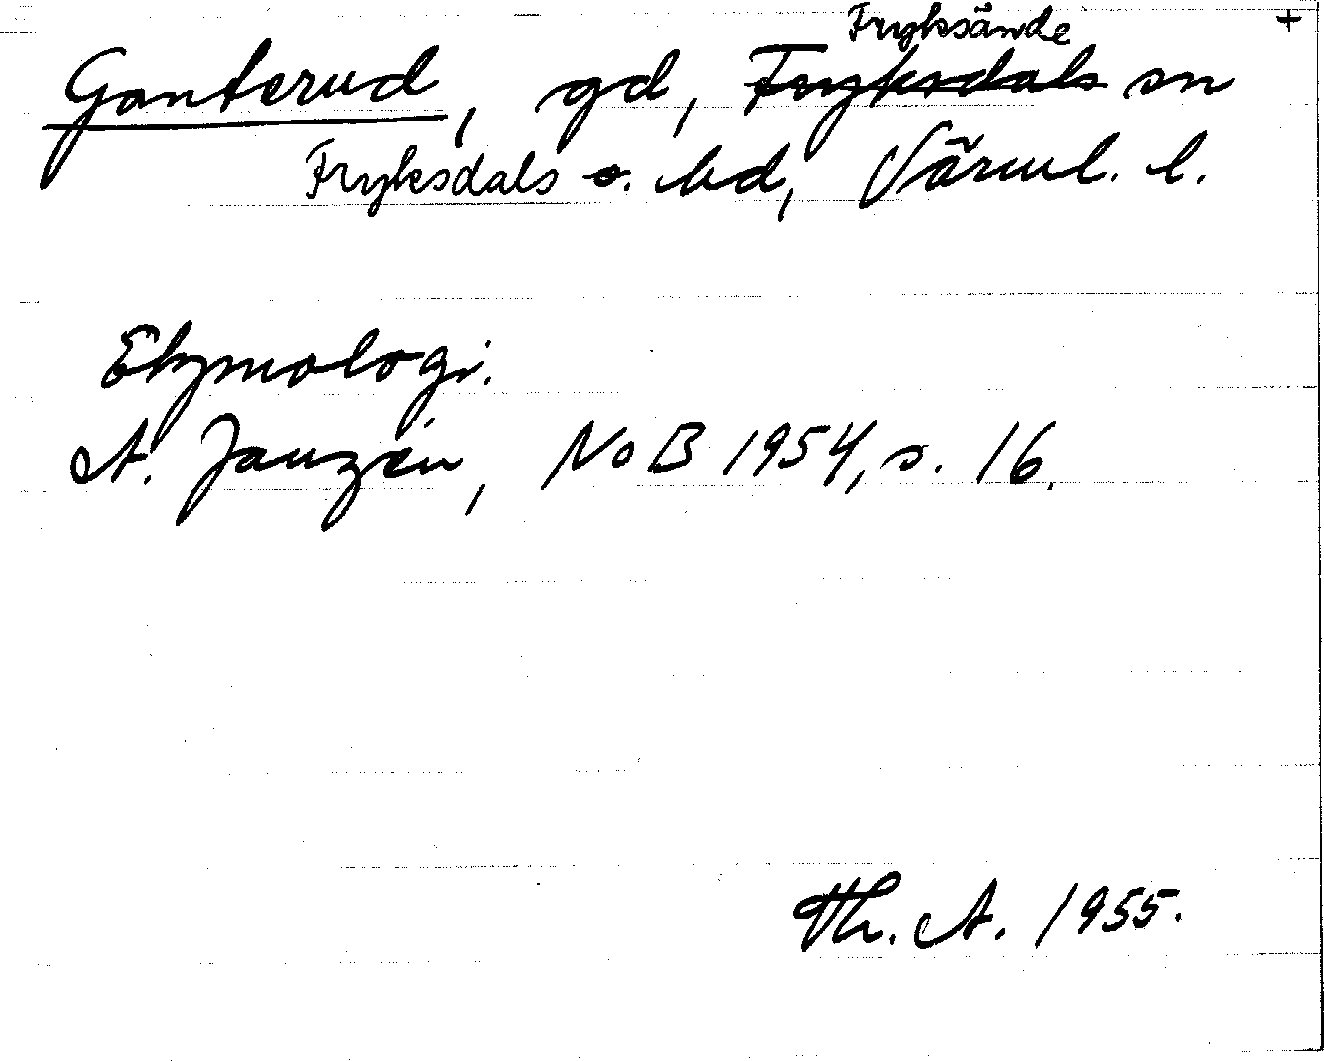 Fryksände +
Ganterud, gd, Fryksdals sn
Fryksdals o. hd, Värml. l.
Etymologi.
A. Janzén, NoB 1954, s. 16.
Th. A. 1955.